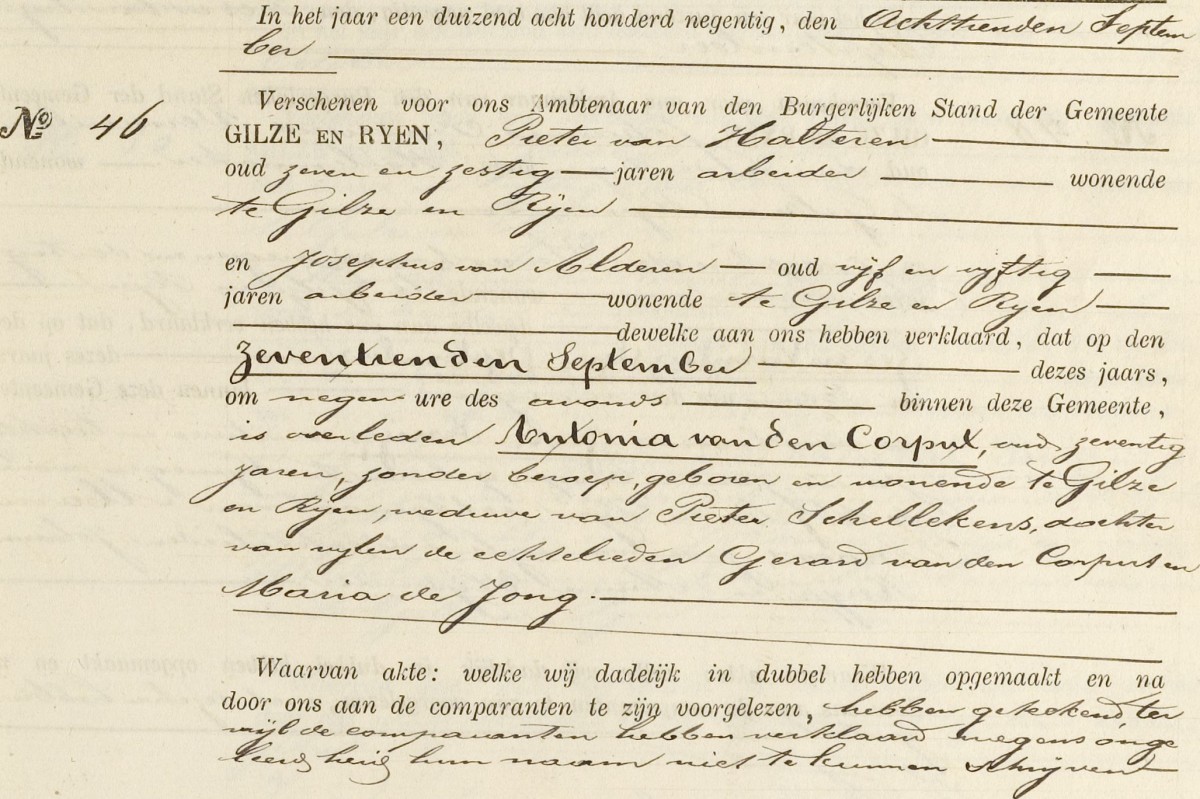 In het jaar een duizend acht honderd negentig, den Achttienden Septem
ber
Verschenen voor ons Ambtenaar van den Burgerlijken Stand der Gemeente
No 46
GILZE EN RYEN, Pieter van Halteren
oud zeven en zestig jaren arbeider wonende
te Gilze en Ryen
en Josephus van Alderen oud vijf en vijftig
jaren arbeider wonende te Gilze en Ryen
dewelke aan ons hebben verklaard, dat op den
zeventienden September dezes jaars,
om negen ure des avonds binnen deze Gemeente,
is overleden Antonia van den Corput, oud zeventig
jaren, zonder beroep, geboren en wonende te Gilze
en Ryen, weduwe van Pieter Schellekens, dochter
van wylen de echtelieden Gerard van den Corput en
Maria de Jong.
Waarvan akte: welke wij dadelijk in dubbel hebben opgemaakt en na
door ons aan de comparanten te zijn voorgelezen, hebben geteekend, ter
wijl de comparanten hebben verklaard wegens onge
leerdheid hun naam niet te kunnen schrijven